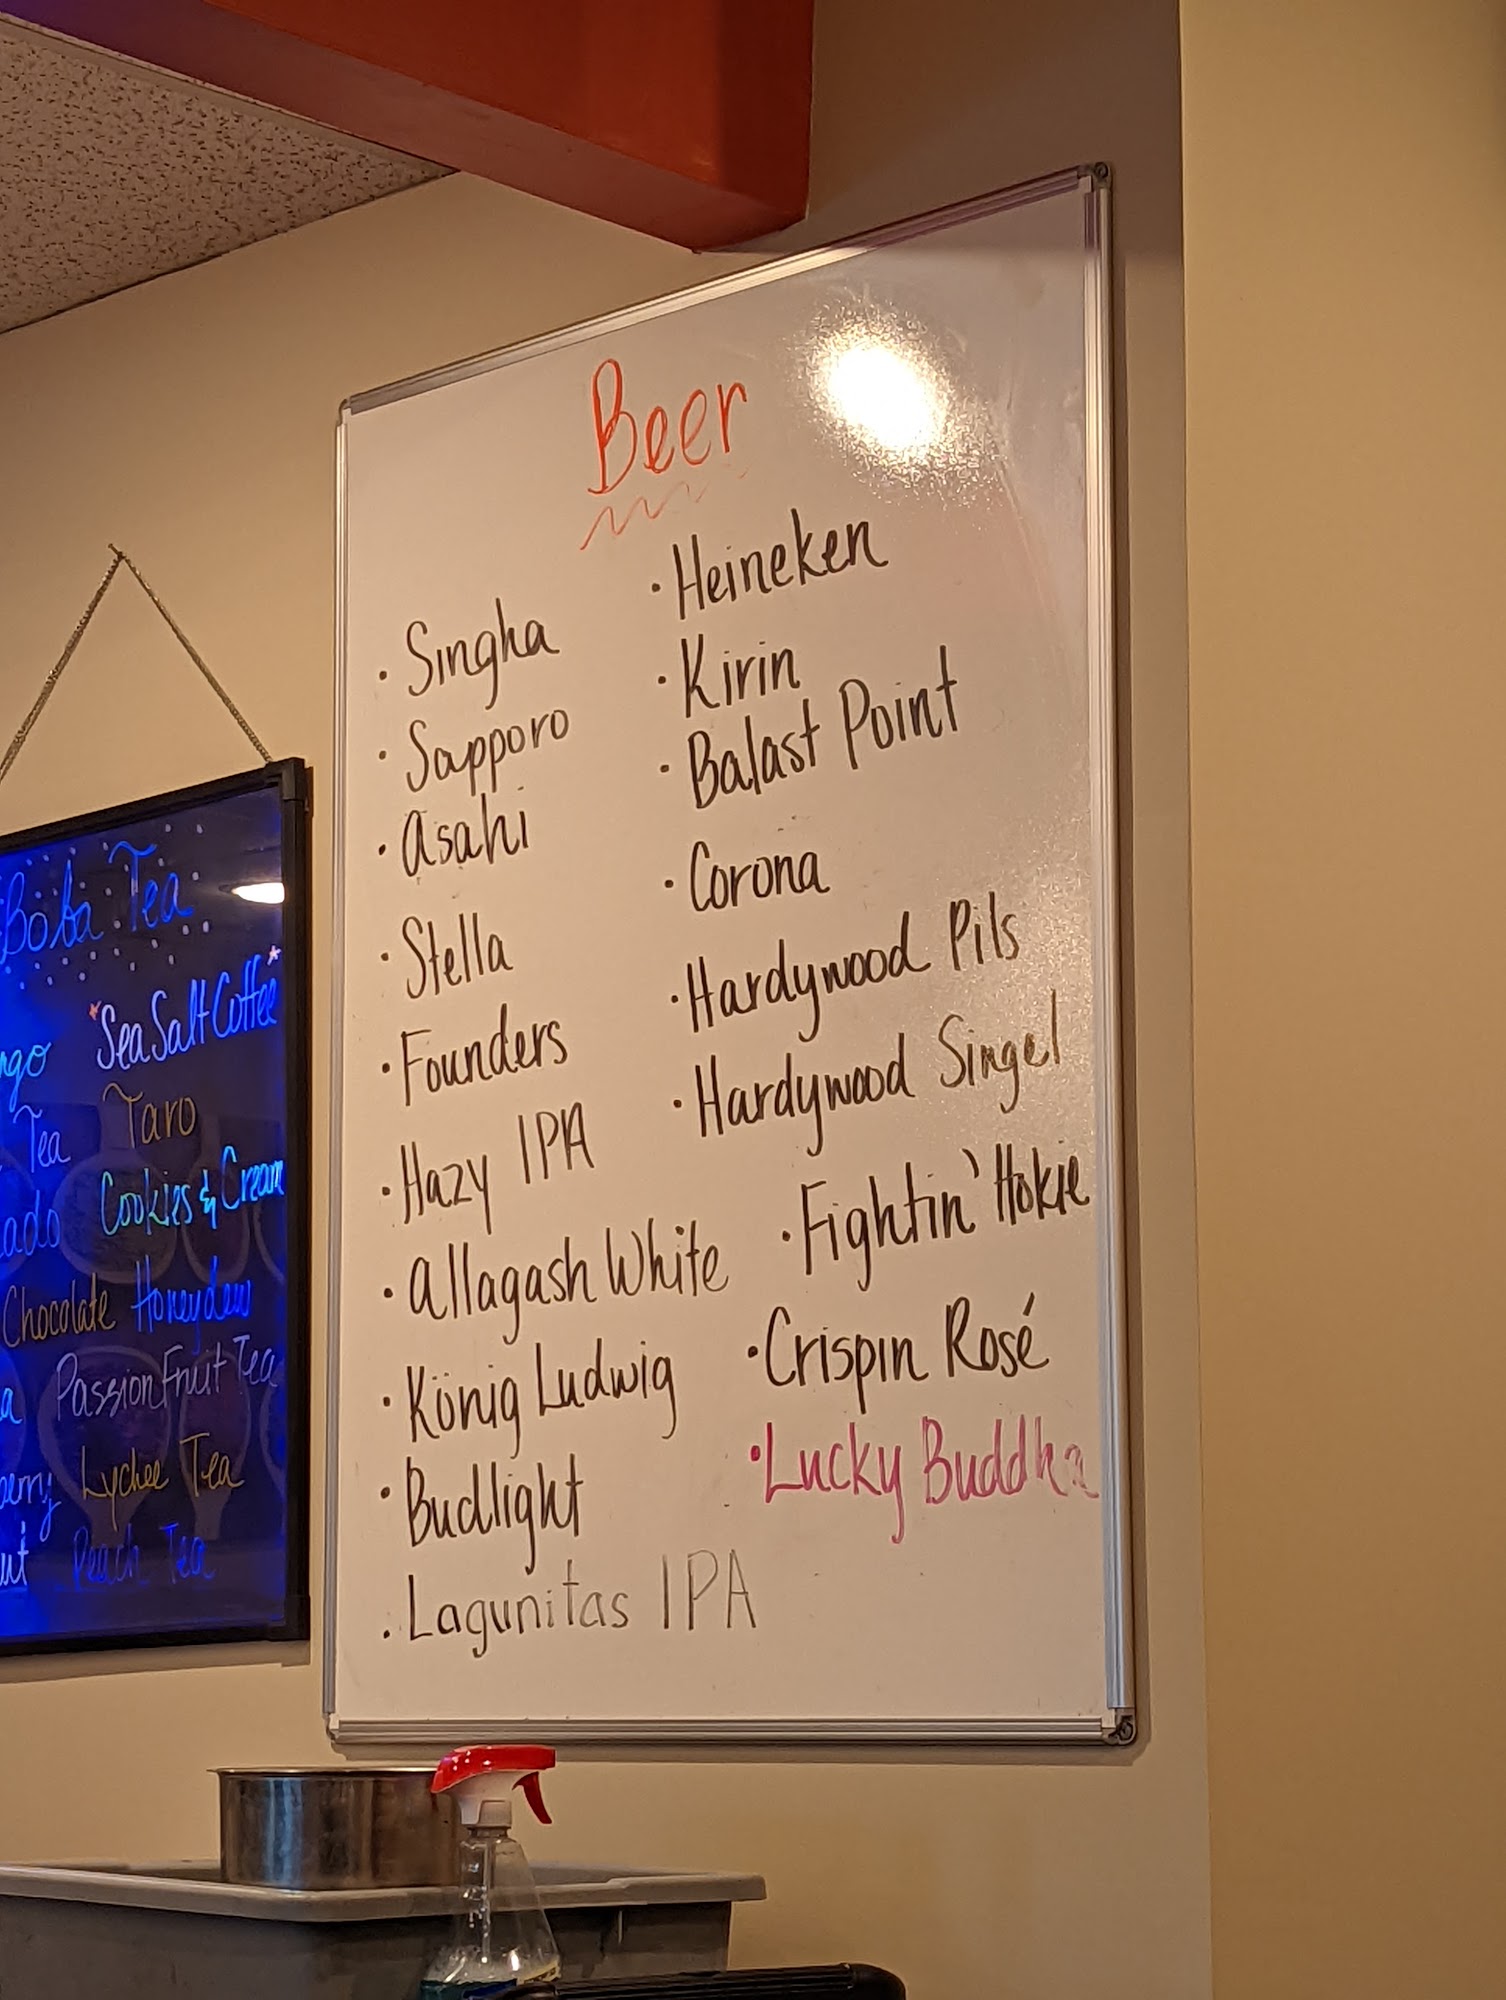 Beer
· Singha
· Sapporo
· Asahi
· Stella
· Founders
· Hazy IPA
· Allagash White
· König Ludwig
· Budlight
. Lagunitas IPA
· Heineken
· Kirin
· Balast Point
· Corona
· Hardywood Pils
· Hardywood Singel
· Fightin' Hokie
· Crispin Rosé
· Lucky Buddha
Boba Tea
*Sea Salt Coffee*
Taro
Tea
Cookies & Cream
Chocolate Honeydew
Passion Fruit Tea
Lychee Tea
Peach Tea